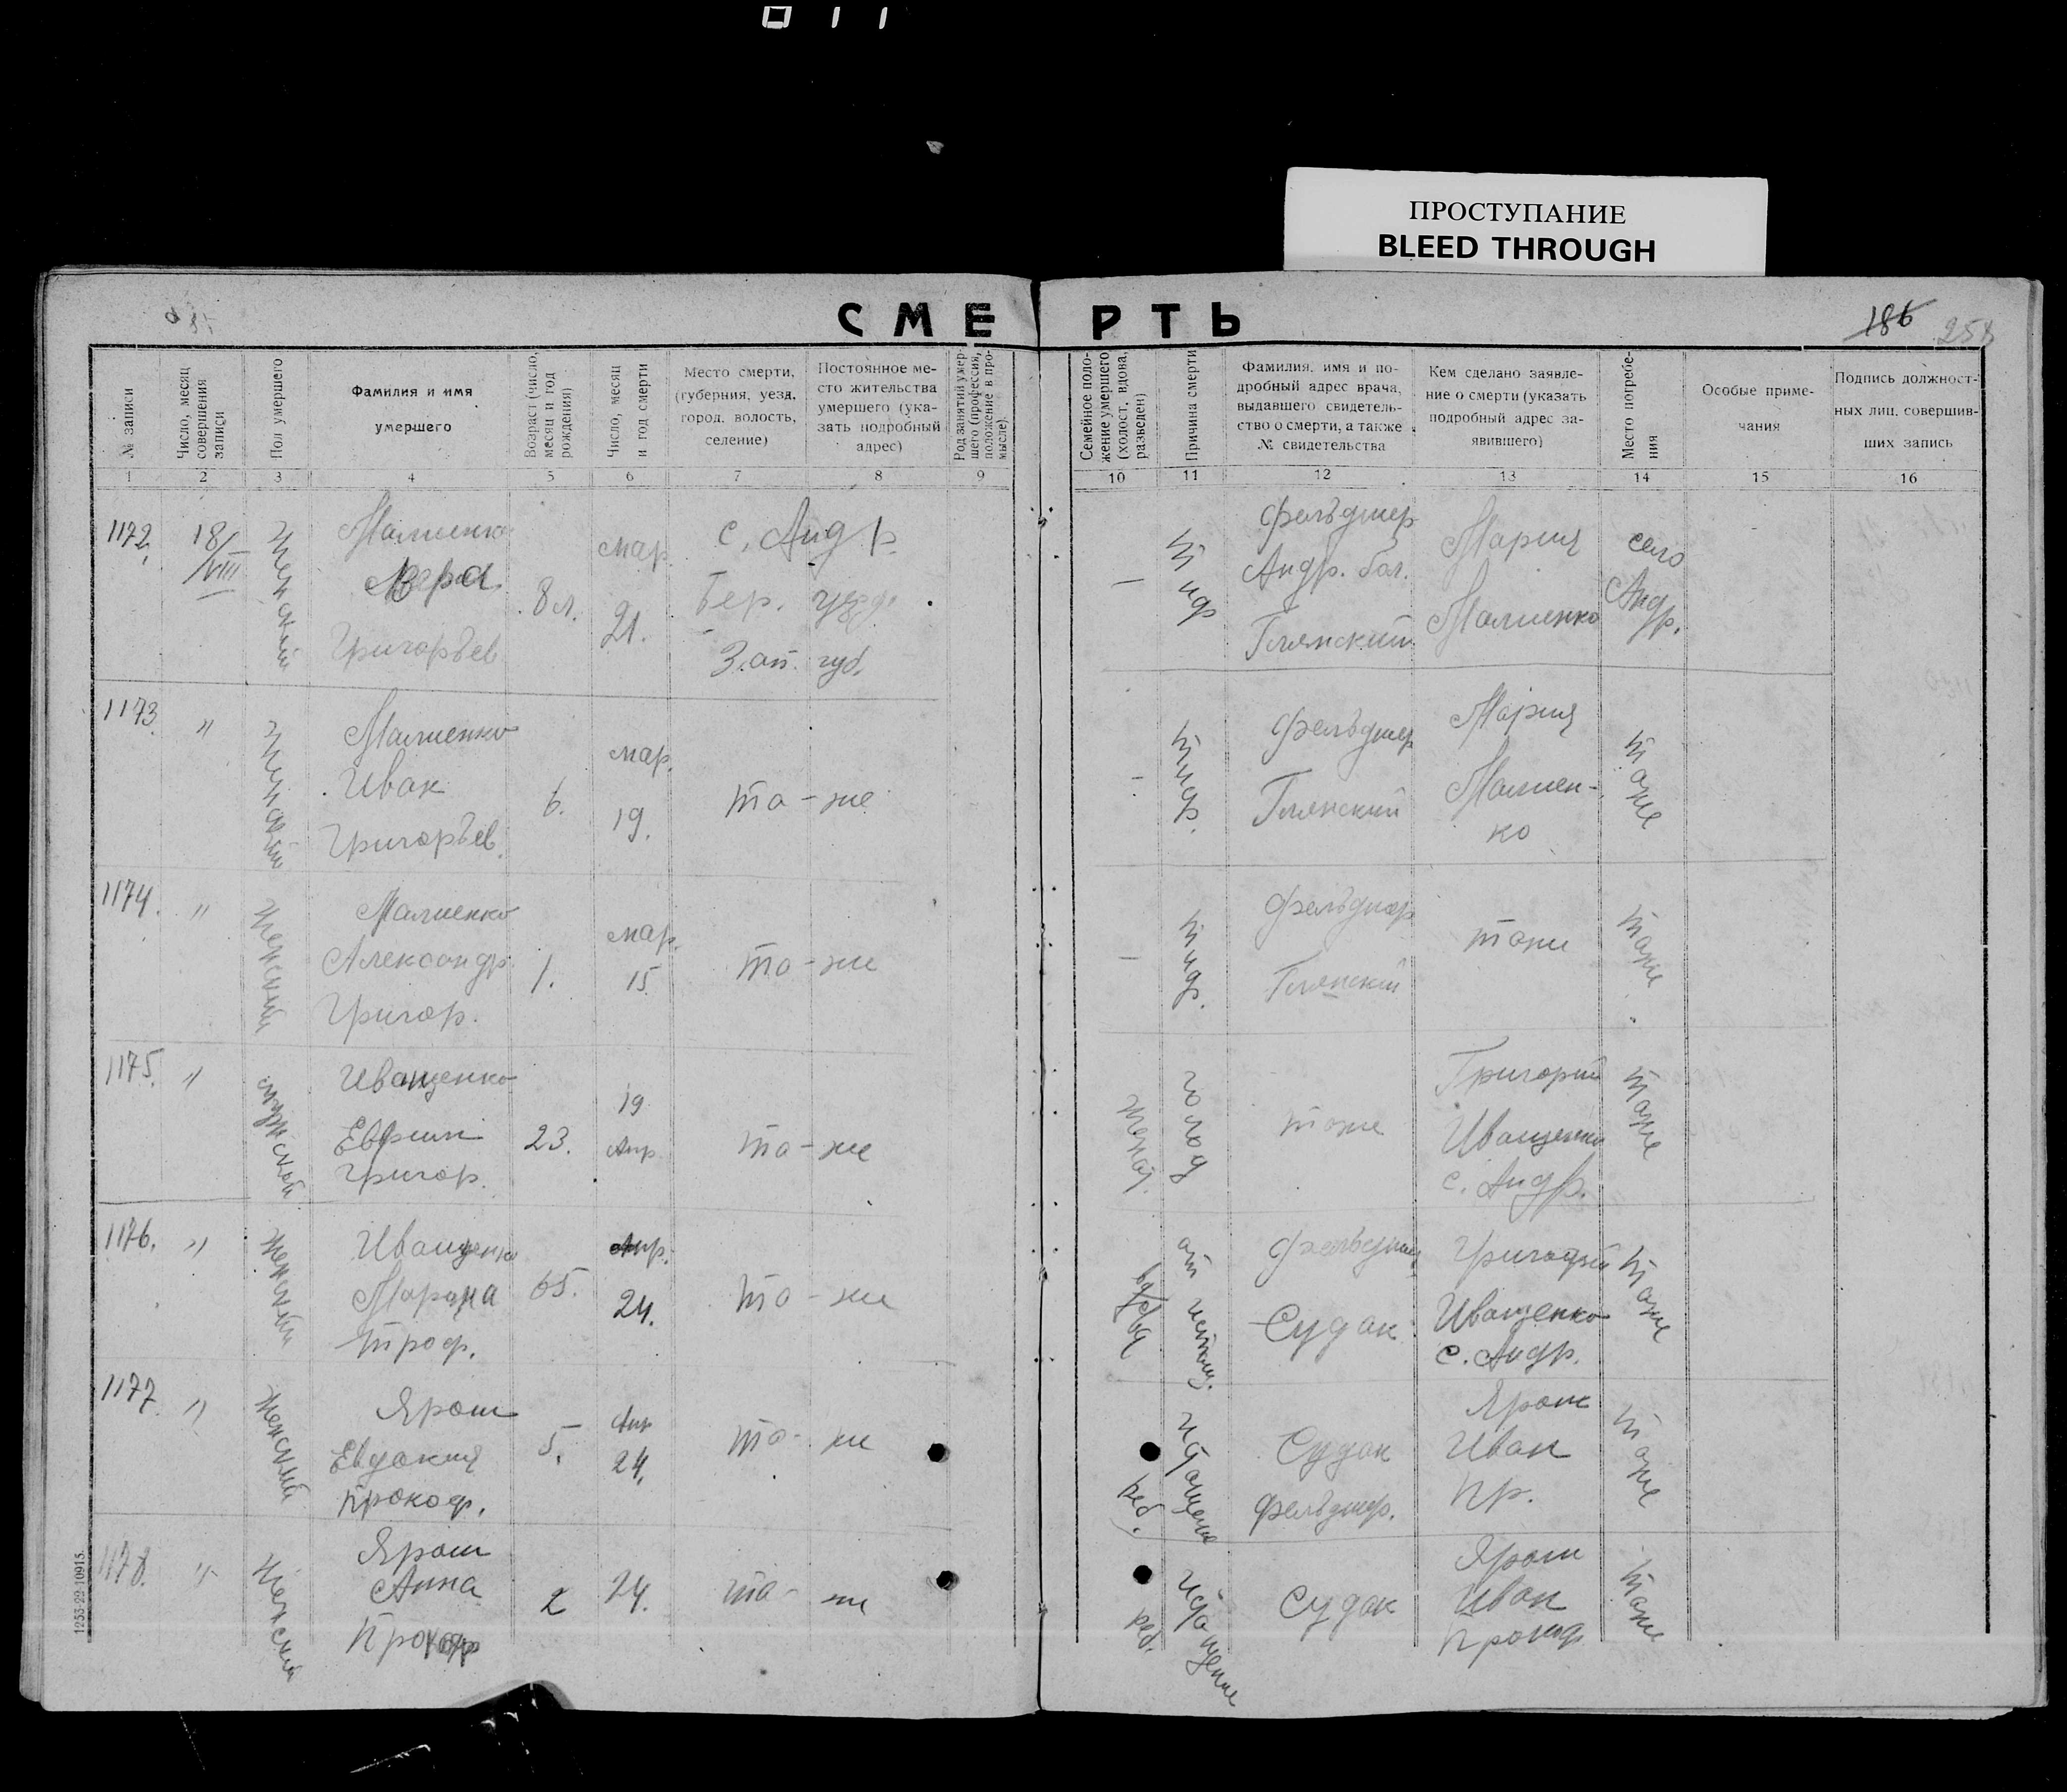 ПРОСТУПАНИЕ
BLEED THROUGH
СМЕРТЬ
186
258
№ записи
Число, месяц совершения записи
Пол умершего
Фамилия и имя умершего
Возраст (число, месяц и год рождения)
Число, месяц и год смерти
Место смерти, (губерния, уезд, город, волость, селение)
Постоянное место жительства умершего (указать подробный адрес)
Род занятий умершего (профессия, положение в промысле)
Семейное положение умершего (холост, вдова, разведен)
Причина смерти
Фамилия, имя и подробный адрес врача, выдавшего свидетельство о смерти, а также № свидетельства
Кем сделано заявление о смерти (указать подробный адрес заявившего)
Место погребения
Особые примечания
Подпись должностных лиц, совершивших запись
1 2 3 4 5 6 7 8 9 10 11 12 13 14 15 16
1172. 18/VIII Женский
Малиенко
Вера
Григорьев
8 л.
мар.
21.
с. Андр.
Бер. уезд.
Зап. губ.
—
Тиф
Фельдшер
Андр. бол.
Глянский
Мария
Малиенко
село
Андр.
1173. " Женский
Малиенко
Иван
Григорьев
6.
мар.
19.
то-же
—
Тиф.
Фельдшер
Глянский
Мария
Малиен-
ко
тоже
1174. " Женский
Малиенко
Александр
Григор.
1.
мар.
15
то-же
—
Тиф.
Фельдшер
Глянский
тоже
тоже
1175. " мужской
Иващенко
Ефим
Григор.
23.
19
Апр.
то-же
женат.
голод
тоже
Григорий
Иващенко
с. Андр.
тоже
1176. " Женский
Иващенко
Троф.
65.
Апр.
24.
то-же
вдова
от истощ.
Фельдшер
Судак
Григорий
Иващенко
с. Андр.
тоже
1177. " Женский
Ярош
Евдокия
Прокоф.
5.
Апр
24.
то-же
реб.
истощение
Судак
фельдшер.
Ярош
Иван
Пр.
тоже
1178. " Женский
Ярош
Анна
Прокоф
2
24.
то-же
реб.
истощение
Судак
Ярош
Иван
Прокоф.
тоже
1253-22-10915.